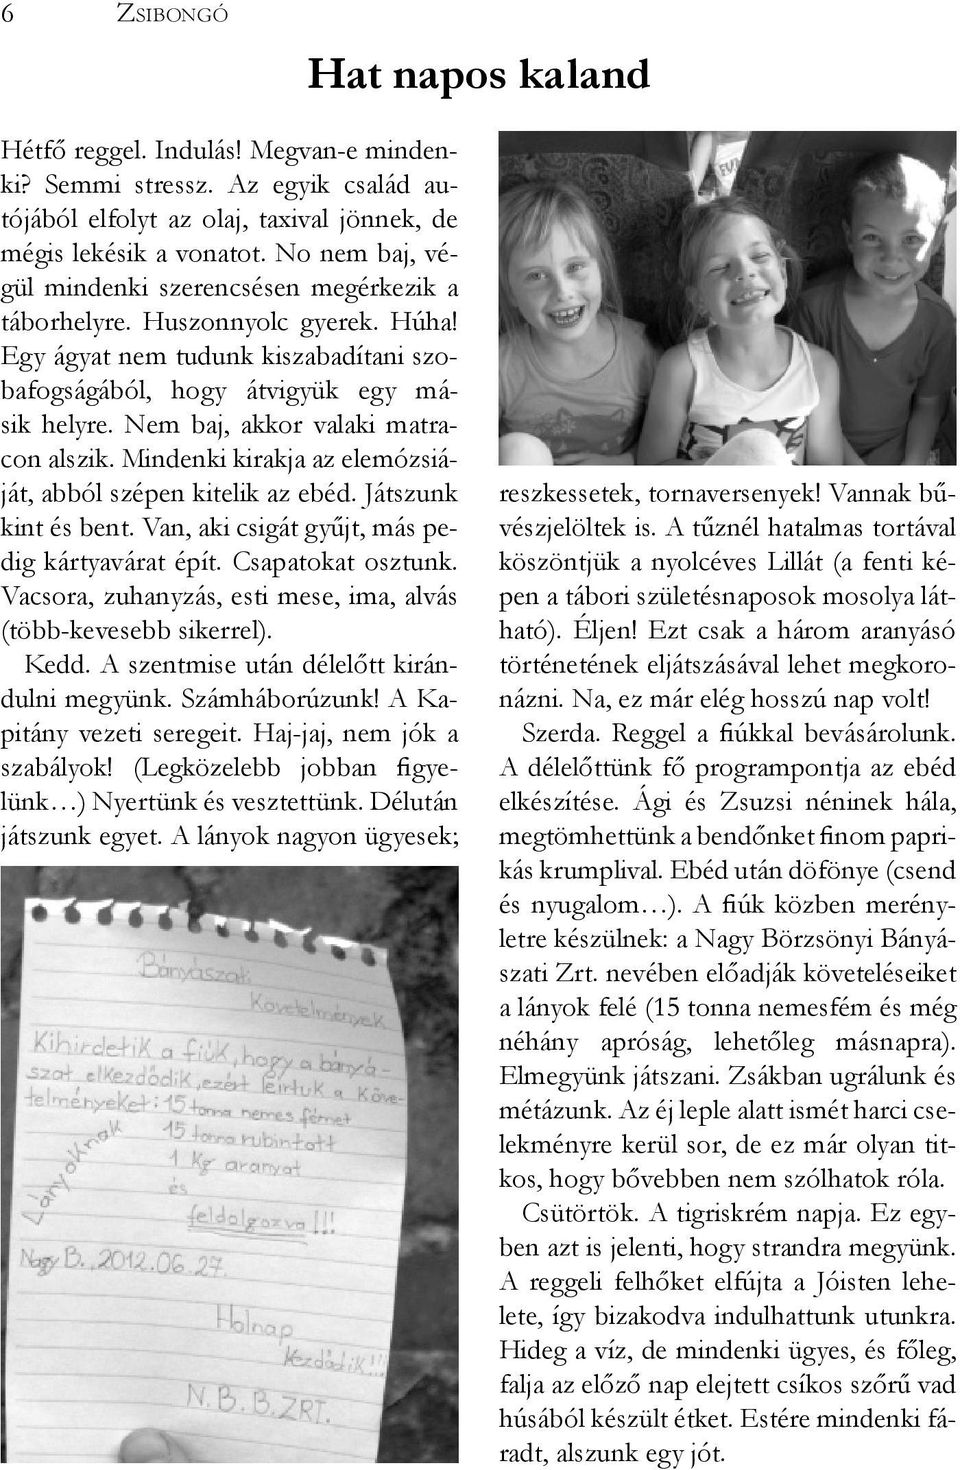 6 ZSIBONGÓ
Hat napos kaland
Hétfő reggel. Indulás! Megvan-e minden-
ki? Semmi stressz. Az egyik család au-
tójából elfolyt az olaj, taxival jönnek, de
mégis lekésik a vonatot. No nem baj, vé-
gül mindenki szerencsésen megérkezik a
táborhelyre. Huszonnyolc gyerek. Húha!
Egy ágyat nem tudunk kiszabadítani szo-
bafogságából, hogy átvigyük egy má-
sik helyre. Nem baj, akkor valaki matra-
con alszik. Mindenki kirakja az elemózsiá-
ját, abból szépen kitelik az ebéd. Játszunk
kint és bent. Van, aki csigát gyűjt, más pe-
dig kártyavárat épít. Csapatokat osztunk.
Vacsora, zuhanyzás, esti mese, ima, alvás
(több-kevesebb sikerrel).
Kedd. A szentmise után délelőtt kirán-
dulni megyünk. Számháborúzunk! A Ka-
pitány vezeti seregeit. Haj-jaj, nem jók a
szabályok! (Legközelebb jobban figye-
lünk…) Nyertünk és vesztettünk. Délután
játszunk egyet. A lányok nagyon ügyesek;
Bányászati
Követelmények
Kihirdetik a fiúk, hogy a bányá-
szat elkezdődik, ezért leírtuk a Köve-
telményeket: 15 tonna nemes fémet
15 tonna rubintott
1 Kg aranyat
és
feldolgozva!!!
Lányoknak
Nagy B., 2012.06.27.
Holnap
Kezdődik!!!
N.B.B.ZRT.
reszkessetek, tornaversenyek! Vannak bű-
vészjelöltek is. A tűznél hatalmas tortával
köszöntjük a nyolcéves Lillát (a fenti ké-
pen a tábori születésnaposok mosolya lát-
ható). Éljen! Ezt csak a három aranyásó
történetének eljátszásával lehet megkoro-
názni. Na, ez már elég hosszú nap volt!
Szerda. Reggel a fiúkkal bevásárolunk.
A délelőttünk fő programpontja az ebéd
elkészítése. Ági és Zsuzsi néninek hála,
megtömhettünk a bendőnket finom papri-
kás krumplival. Ebéd után döfönye (csend
és nyugalom…). A fiúk közben merény-
letre készülnek: a Nagy Börzsönyi Bányá-
szati Zrt. nevében előadják követeléseiket
a lányok felé (15 tonna nemesfém és még
néhány apróság, lehetőleg másnapra).
Elmegyünk játszani. Zsákban ugrálunk és
métázunk. Az éj leple alatt ismét harci cse-
lekményre kerül sor, de ez már olyan tit-
kos, hogy bővebben nem szólhatok róla.
Csütörtök. A tigriskrém napja. Ez egy-
ben azt is jelenti, hogy strandra megyünk.
A reggeli felhőket elfújta a Jóisten lehe-
lete, így bizakodva indulhattunk utunkra.
Hideg a víz, de mindenki ügyes, és főleg,
falja az előző nap elejtett csíkos szőrű vad
húsából készült étket. Estére mindenki fá-
radt, alszunk egy jót.